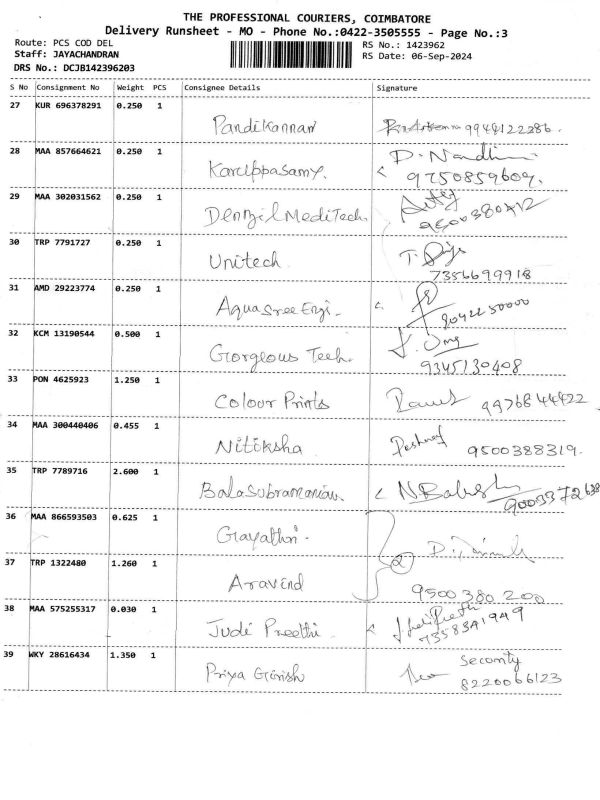 THE PROFESSIONAL COURIERS, COIMBATORE
Delivery Runsheet - MO - Phone No.:0422-3505555 - Page No.:3
Route: PCS COD DEL
RS No.: 1423962
Staff: JAYACHANDRAN
RS Date: 06-Sep-2024
DRS No.: DCJB142396203
S No Consignment No Weight PCS Consignee Details Signature
27 KUR 696378291 0.250 1
Pandikannan 9944122286.
28 MAA 857664621 0.250 1
Karuppasamy. D. Nandhini
9750859609.
29 MAA 302031562 0.250 1
Denzil MediTech. 9500380412
30 TRP 7791727 0.250 1
Unitech
7356699918
31 AMD 29223774 0.250 1
AquaSree Engi.
8042250000
32 KCM 13190544 0.500 1
Gorgeous Tech.
9345130408
33 PON 4625923 1.250 1
Colour Prints 9976844422
34 MAA 300440406 0.455 1
Nitiksha 9500388319.
35 TRP 7789716 2.600 1
Balasubramanian. N. Balesh
9003372638
36 MAA 866593503 0.625 1
Gayathri.
37 TRP 1322480 1.260 1
2
Aravind 9500380200
38 MAA 575255317 0.030 1
Judi Preethi Judi Preethi
7358391949
39 WKY 28616434 1.350 1
Priya Girish Security
8220066123